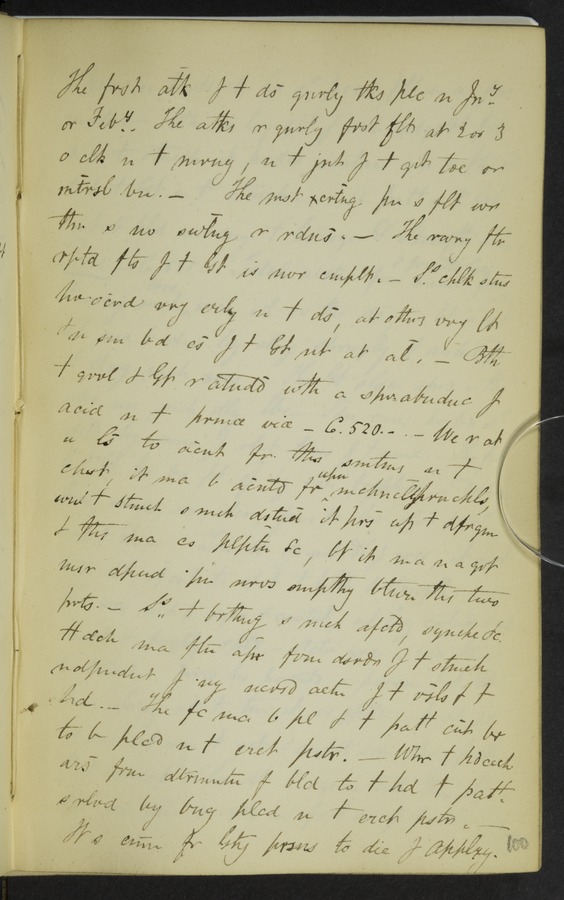 The frst atk f t ds gnrly tks plc n Jny.
or Feby. The atks r gnrly frst flt at 2 or 3
o clk n t mrng, n t jnt f t grt toe or
mtrsl bn. — The mst xcrtng pn s flt whn
thr s no swlng r rdns. — The rcvry ftr
rptd fts f t Gt is nvr cmplt. — Sº. chlk stns
hv ocrd vry erly n t ds, at othrs vry lt
+ n sm bd cs f t Gt nt at al. — Bth
t grvl & Gt r atndd wth a sprabndnc f
acid n t prmæ viæ — C. 520. — We r at
a ls to acnt fr ths smtms n t
chst, it ma b acntd fr upn mchncl prncpls,
whn t stmch s mch dstnd it prs up t dfrgm
& ths ma cs plptn &c, bt it ma n a grt
msr dpnd pn nrvs smpthy btwn ths two
prts. — Sº t brthng s mch afctd, syncpe &c.
Hdch ma ftn aprs from dsrdr f t stmch
ndpndnt f ny ncrsd actn f t vsls f t
hd. — The fc ma b pl & t patt cnt br
to b plcd n t erct pstr. — Whr t hdach
ars frm dtrmntn f bld to t hd t patt
s rlvd by bng plcd n t erct pstr. —
It s cmn fr Gty prsns to die f Applxy.
100